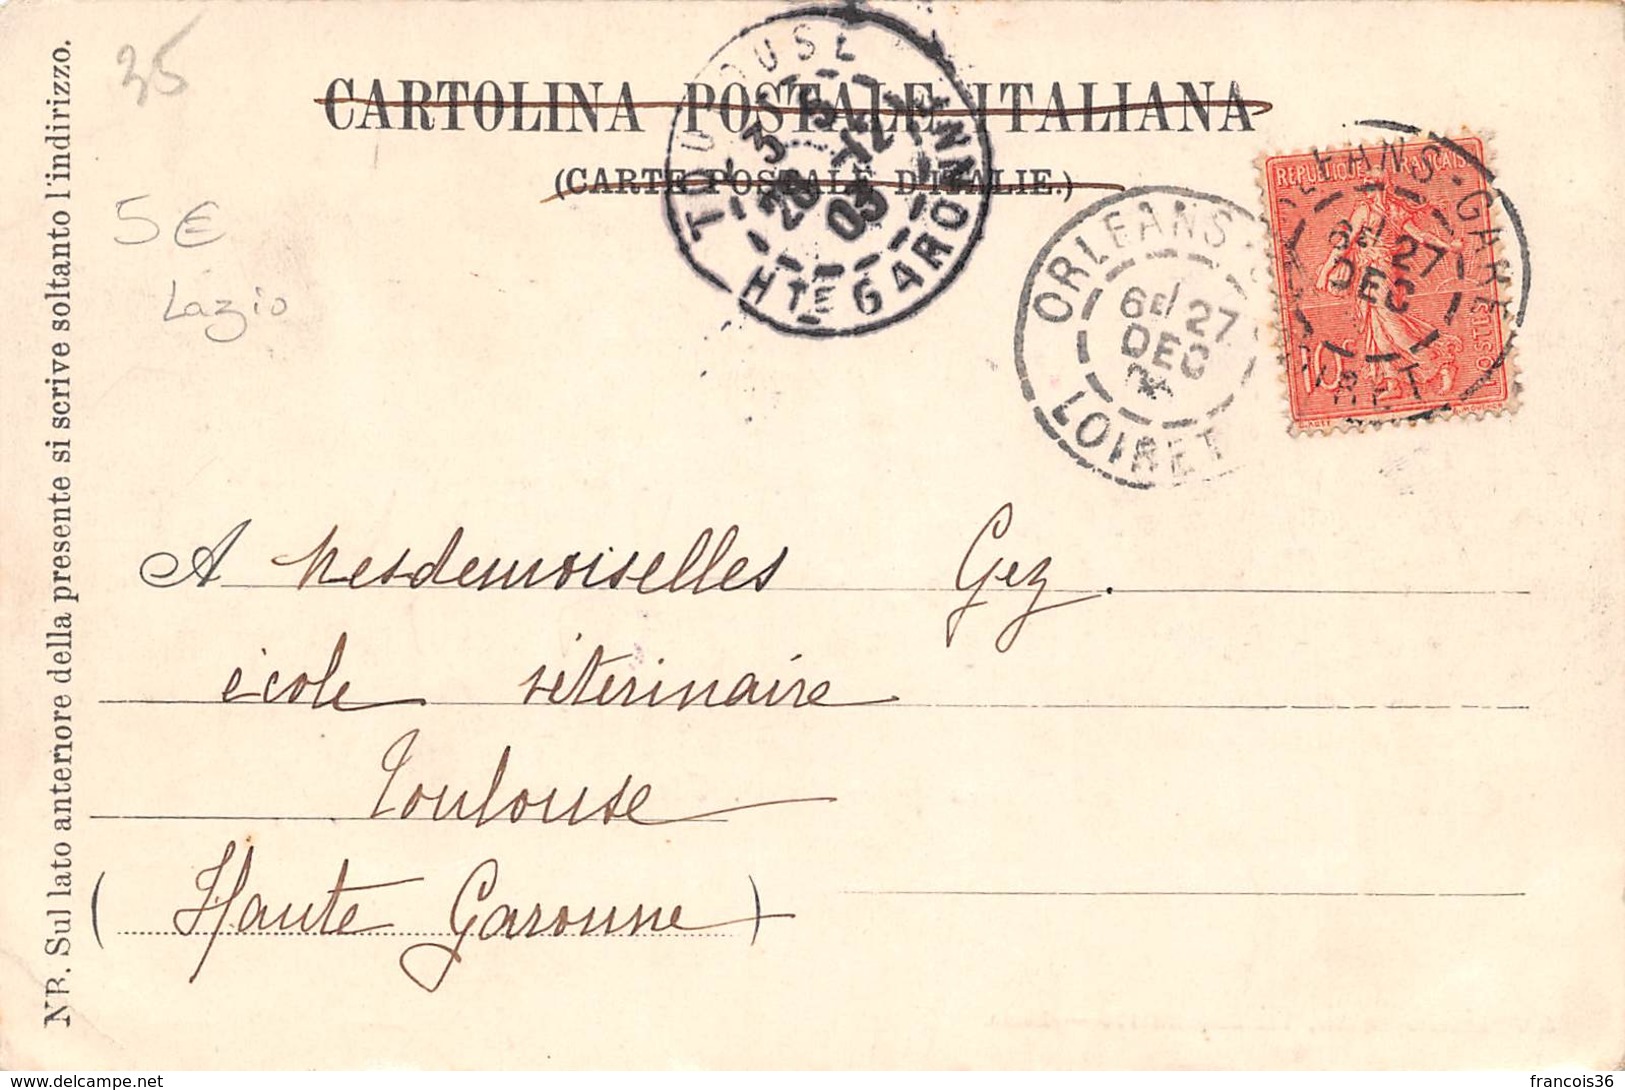 35
CARTOLINA POSTALE ITALIANA
(CARTE POSTALE D'ITALIE.)
5 €
Lazio
TOULOUSE
28 12
03
HTE GARONNE
ORLEANS
6E 27
DEC
LOIRET
REPUBLIQUE FRANCAISE
ORLEANS-GARE
6E 27
DEC
LOIRET
POSTES
10c
NB. Sul lato anteriore della presente si scrive soltanto l'indirizzo.
A Mesdemoiselles Gez.
école véterinaire
Toulouse
(Haute Garonne)
delcampe.net
francois36